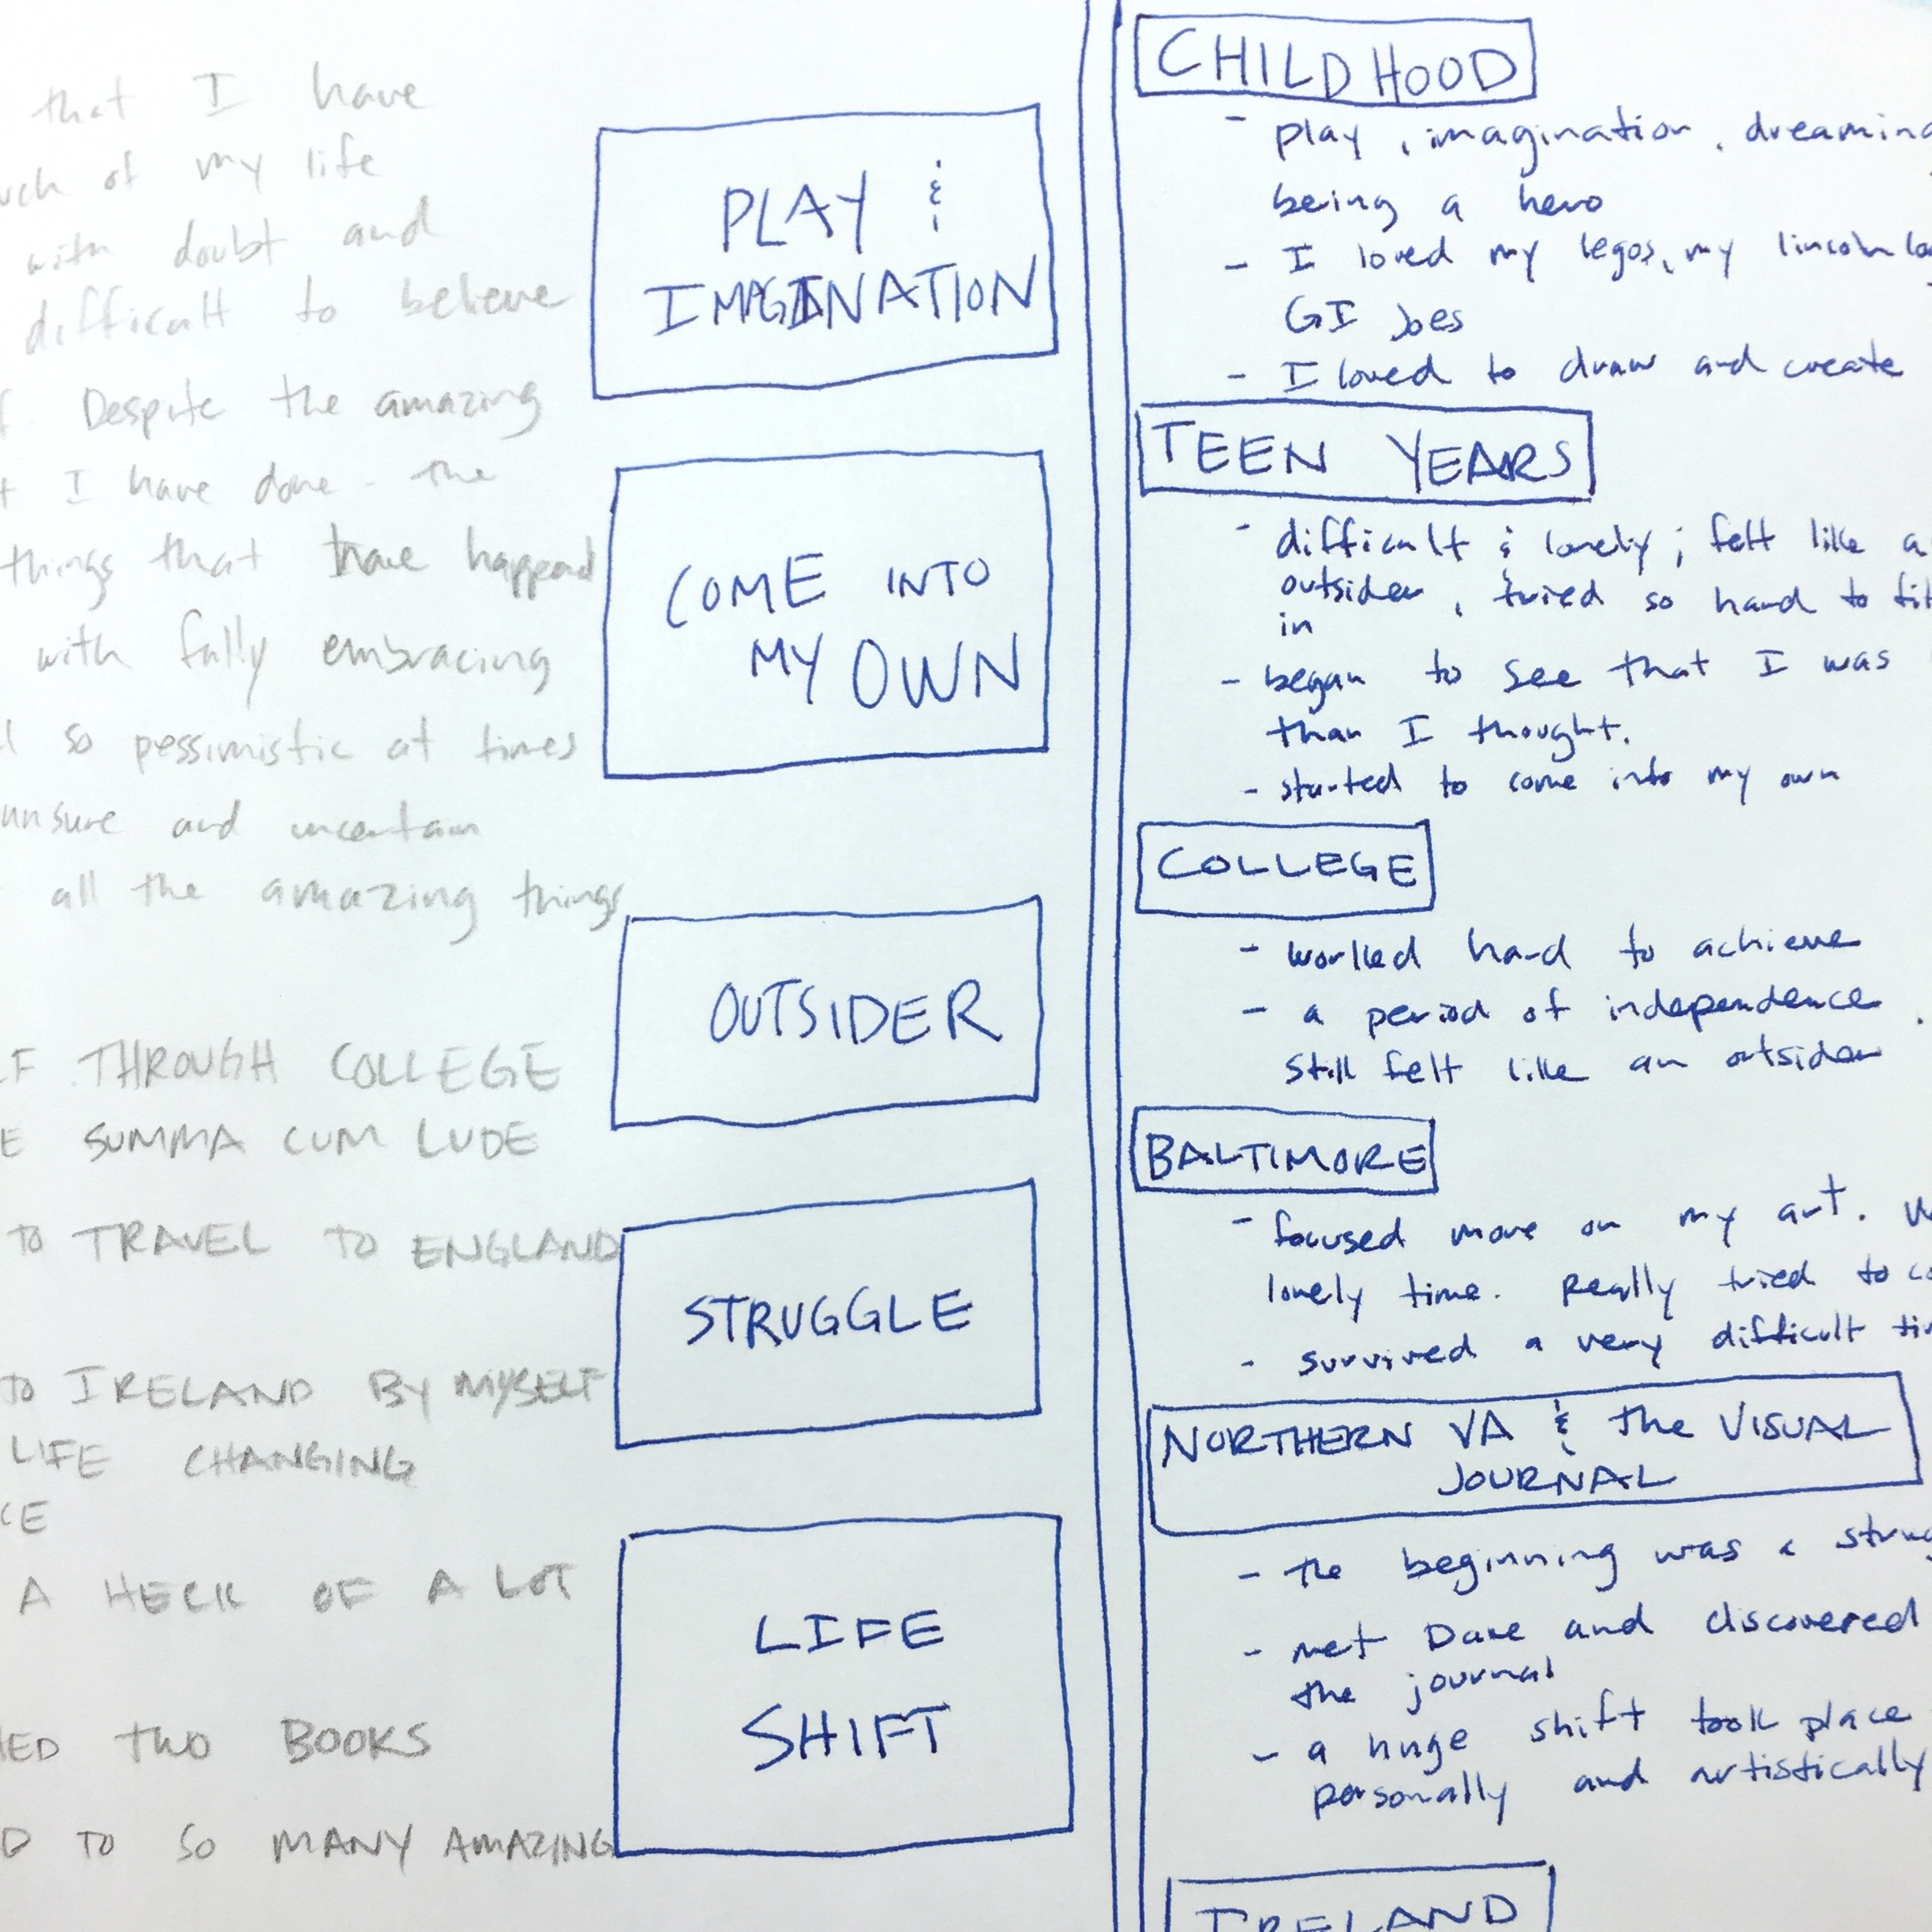 that I have
of my life
with doubt and
difficult to believe
Despite the amazing
I have done - the
things that have happend
with fully embracing
so pessimistic at times
unsure and uncertain
all the amazing things
THROUGH COLLEGE
SUMMA CUM LUDE
TO TRAVEL TO ENGLAND
TO IRELAND BY MYSELF
LIFE CHANGING
A HECK OF A LOT
TWO BOOKS
TO SO MANY AMAZING
PLAY &
IMAGINATION
COME INTO
MY OWN
OUTSIDER
STRUGGLE
LIFE
SHIFT
CHILDHOOD
- play, imagination, dreaming
being a hero
- I loved my legos, my lincoln
GI Joes
- I loved to draw and create
TEEN YEARS
- difficult & lonely; felt like a
outsider, tried so hard to fit
in
- began to see that I was
than I thought.
- started to come into my own
COLLEGE
- worked hard to achieve
- a period of independence.
still felt like an outsider
BALTIMORE
- focused more on my art.
lonely time. Really tried to
- survived a very difficult
NORTHERN VA & the VISUAL
JOURNAL
- the beginning was a
- met Dave and discovered
the journal
- a huge shift took place
personally and artistically
IRELAND